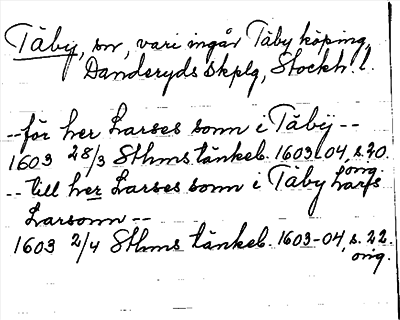 Täby, sn, vari ingår Täby köping,
Danderyds skplg, Stockh. l.
--för her Larses sonn i Täby--
1603 28/3 Sthms tänkeb. 1603-04, s. 20.
orig.
--till her Larses sonn i Täby Larss
Larsonn--
1603 2/4 Sthms tänkeb. 1603-04, s. 22.
orig.